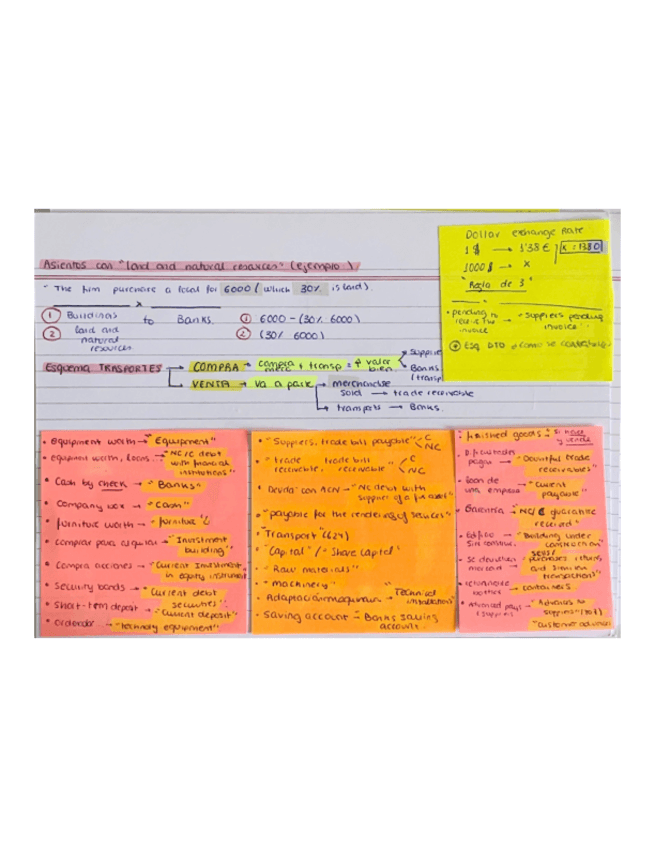 Dollar exchange Rate
1 $ → 1'38 €
x = 1380
1000 $ → x
"Regla de 3"
• pending to receive the invoice → "suppliers pending invoice".
Asientos con "land and natural resources" (ejemplo:)
- The firm purchase a local for 6000 € which 30% is land).
x
① Buildings to Banks ① 6000 - (30% · 6000)
② land and natural resources ② (30% 6000)
Esquema TRASPORTES → COMPRA → compra + transp = + valor bien
Banks (transp
→ VENTA → va a parte → merchandise sold → trade receivable
→ transports → Banks.
• equipment worth → "Equipment"
• equipment worth, loans... → "NC/C debt with financial institutions"
• Cash by check → "Banks"
• Company box → "Cash"
• furniture worth → "furniture"
• comprar para alquilar → "Investment building"
• Compra acciones → "Current Investment in equity instrument
• Security bonds → "Current debt securities".
• Short-term deposit → "Current deposit"
• ordenador → "technoly equipment"
• "Suppliers, trade bill payable" < C NC
• "trade receivable, trade bill receivable" < C NC
• Deuda con ACN → "NC debt with supplier of fix assets"
• "payable for the rendering of services"
• "Transport" (624)
• "Capital" / "Share Capital"
• "Raw materials"
• "machinery"
• Adaptación maquinaria → "Technical installations"
• Saving account → Banks saving account.
• "finished goods": si hace y vende
• Dificultades pagar → "Doubtful trade receivables"
• loan de una empresa → "Current payable"
• Garantía → "NC/C guarantee received"
• Edificio sin construir. → "Building under construction"
• Se devuelven mercad → "purchases returns and similar transactions"
→ containers
• Advanced pays suppliers → "Advances to suppliers" (407)
"Customer advances